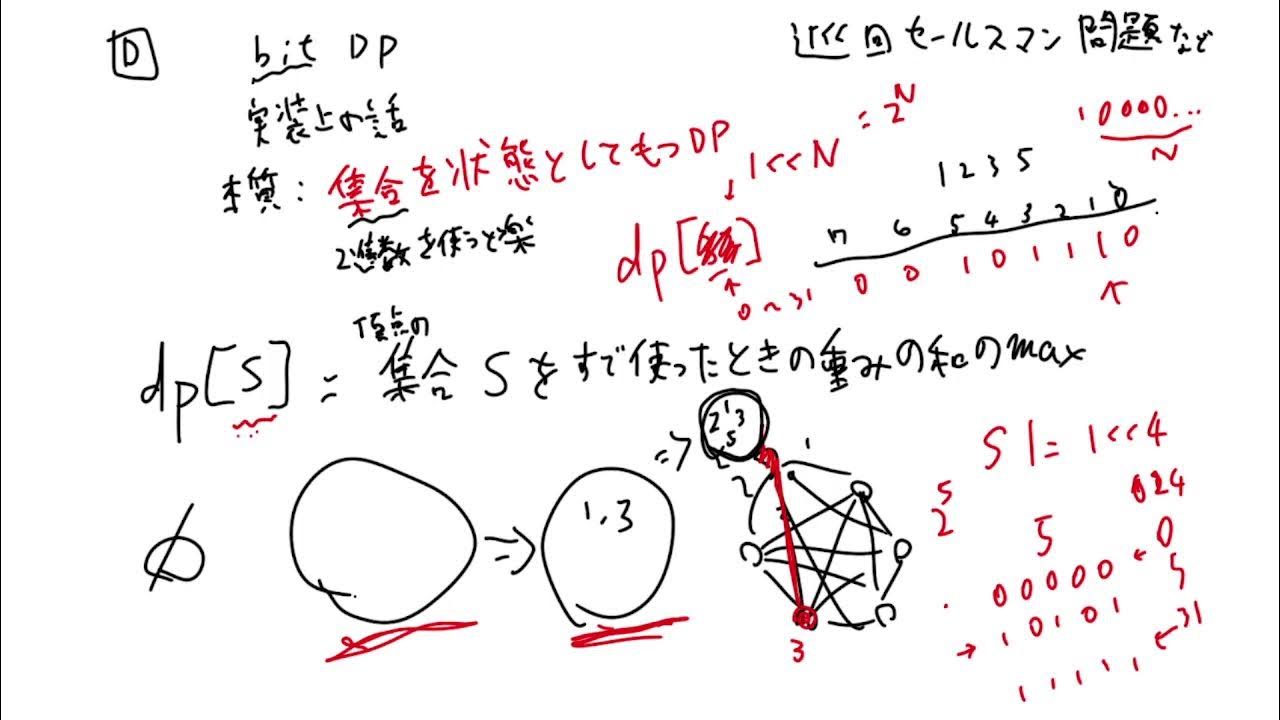 D bit DP
巡回セールスマン問題など
実装上の話
本質：集合を状態としてもつDP
2進数を使うと楽
1<<N = 2^N
10000...
N
1 2 3 5
7 6 5 4 3 2 1 0
0 0 1 0 1 1 1 0
dp[
]
0~31
頂点の
dp[S] = 集合Sをすで使ったときの重みの和のmax
φ
⇒
1,3
⇒
2 1 3
5
2
1
3
S |= 1<<4
2^5
024
5
0
00000 ←
→ 10101
5
11111 ← 31